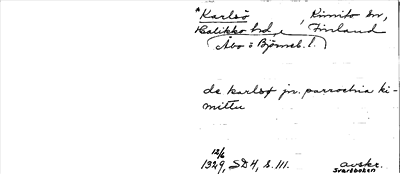 *Karlsö, Kimito sn,
Halikko hd, Finland
(Åbo o Björneb. l.)
de karlsø jn. parrochia ki-
mittu
12/6
1329, SDH, s. 111. avskr.
Svartboken